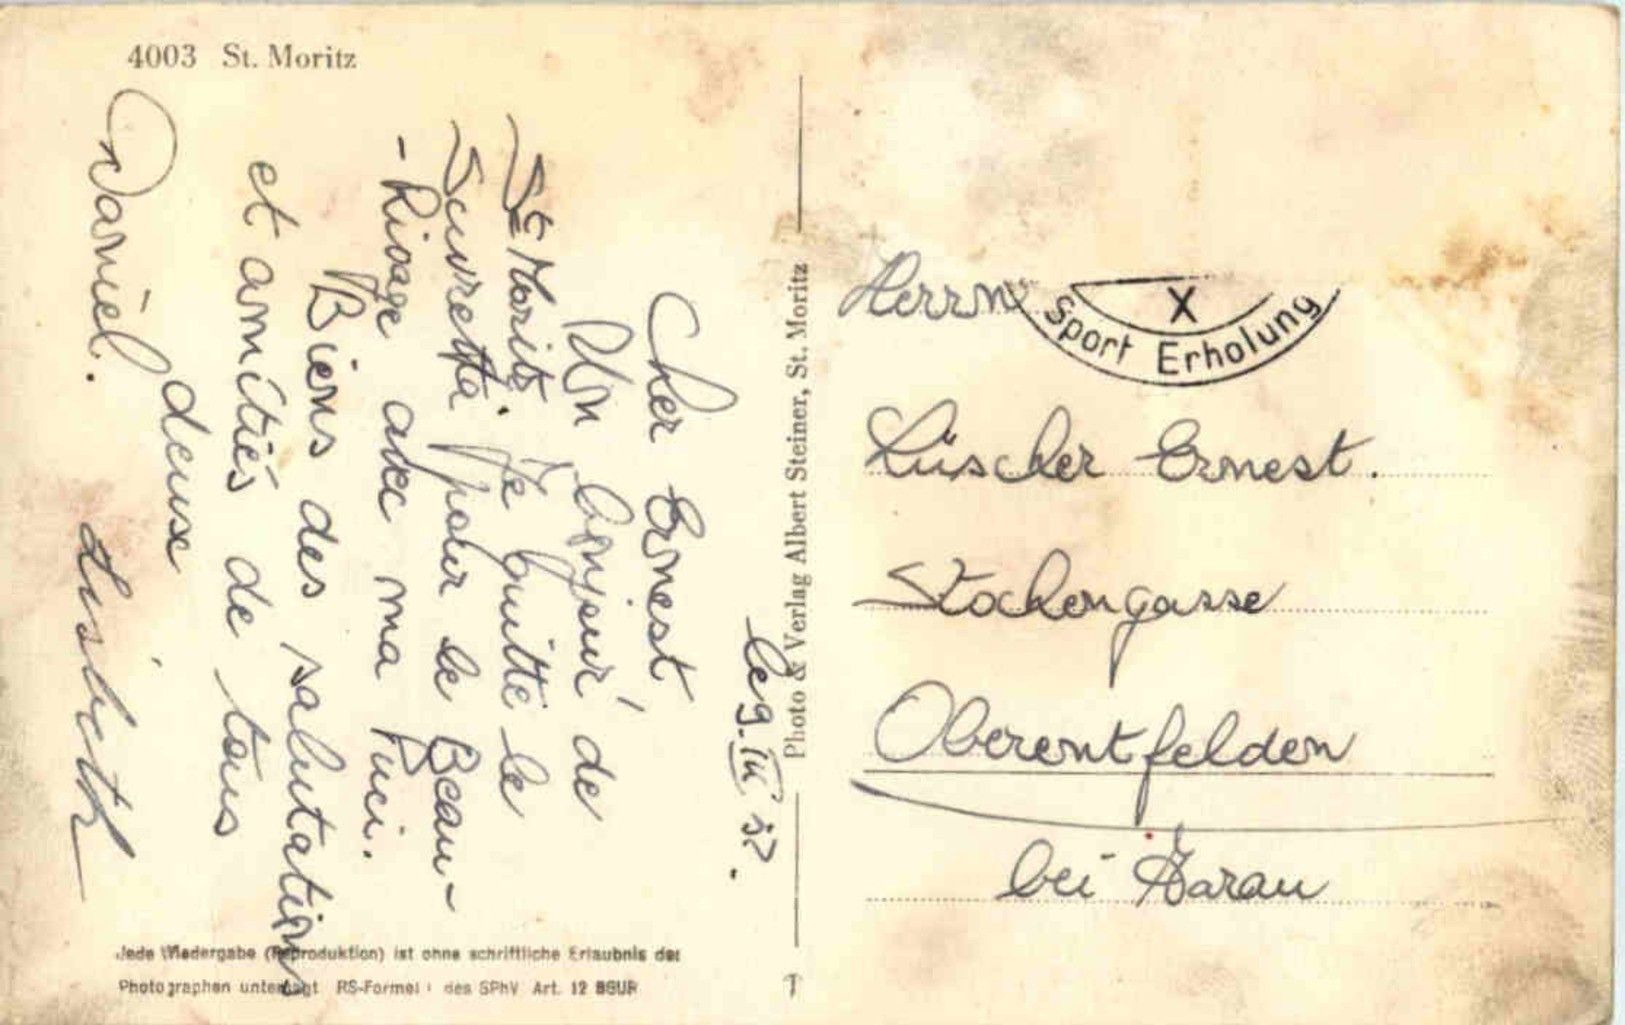 4003 St. Moritz
le 9. III 52.
Cher Ernest
Un bonjour de
St Moritz. Je quitte le
Suvretta pour le Beau-
-Rivage avec ma Puci.
Biens des salutations
et amitiés de tous
deuse
Daniel. Lisbeth
Photo & Verlag Albert Steiner, St. Moritz
Jede Wiedergabe (Reproduktion) ist ohne schriftliche Erlaubnis des
Photographen untersagt RS-Formel des SPhV Art. 12 BGUR
X
Sport Erholung
Herrn
Lüscher Ernest.
Stockengasse
Oberentfelden
bei Aarau